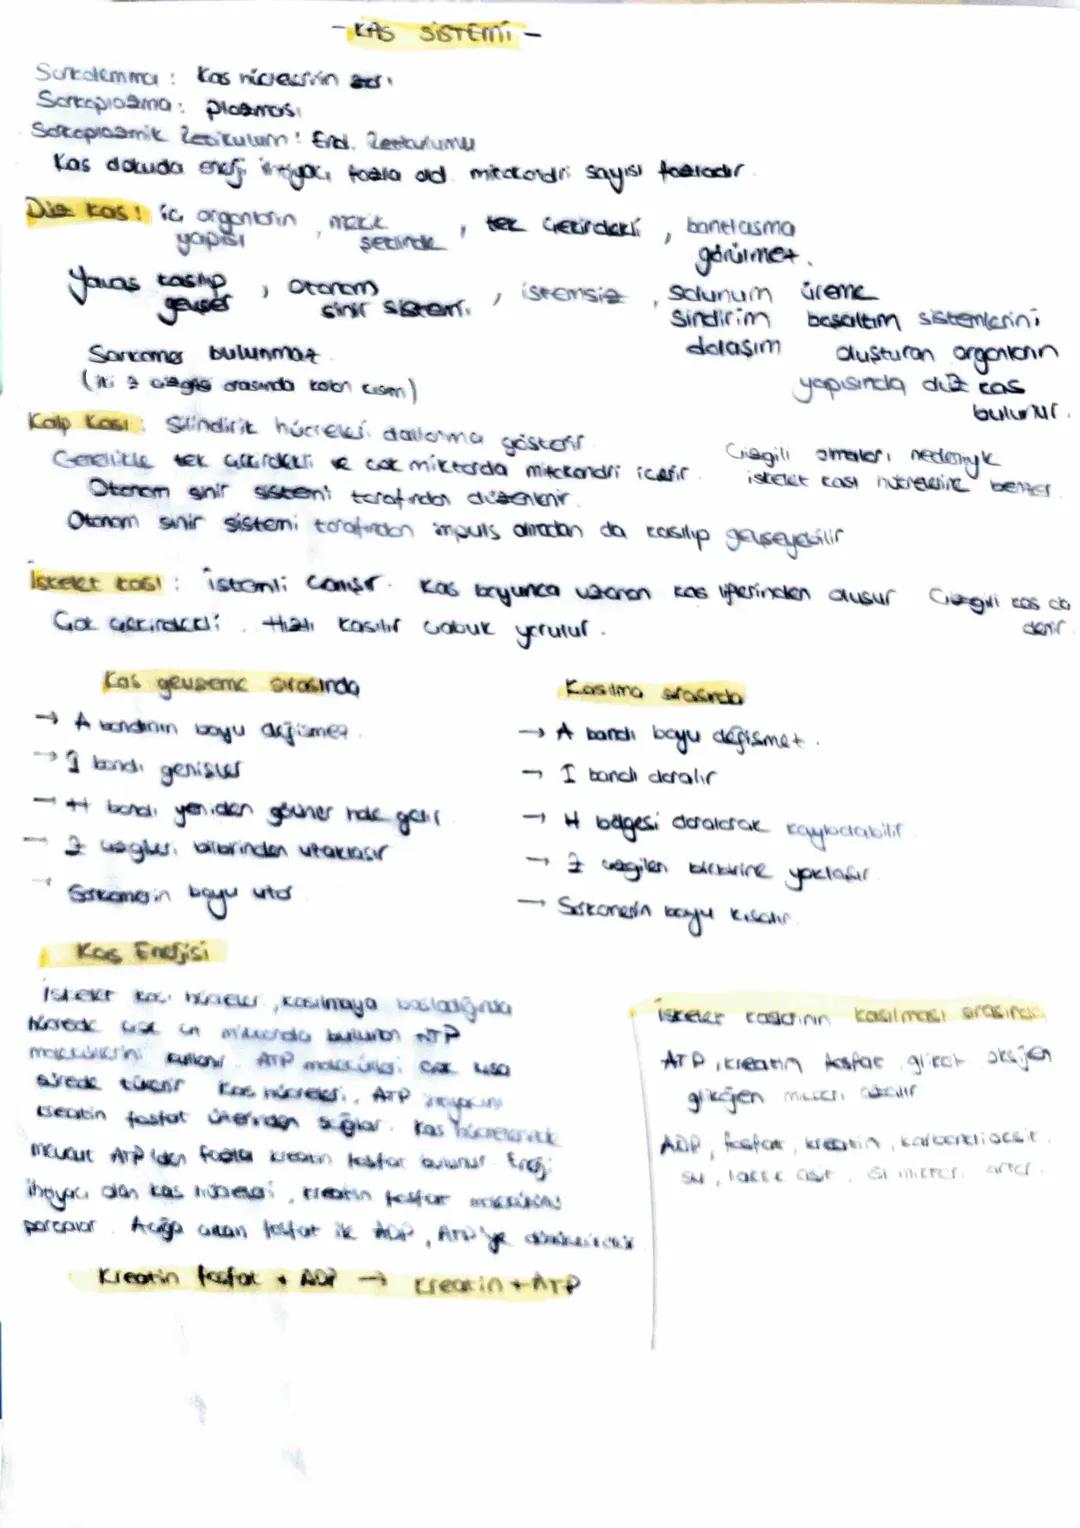 - KAS SİSTEMİ -
Sarkolemma : Kas hücresinin zarı
Sarkoplazma : plazması
Sarkoplazmik Retikulum : End. Retikulumu
Kas dokuda enerji ihtiyacı fazla old. mitokondri sayısı fazladır.
Düz kas : iç organların yapısı, mekik şeklinde, tek çekirdekli, bantlaşma görülmez.
Yavaş kasılıp gevşer, otonom sinir sistemi, istemsiz, Solunum üreme
Sindirim boşaltım sistemlerini
dolaşım oluşturan organların
yapısında düz kas
bulunur.
Sarkomer bulunmaz.
(iki z çizgisi arasında kalan kısım)
Kalp Kası : Silindirik hücreleri dallanma gösterir.
Genellikle tek çekirdekli ve çok miktarda mitokondri içerir.
Çizgili olmaları nedeniyle
iskelet kası hücrelerine benzer.
Otonom sinir sistemi tarafından düzenlenir.
Otonom sinir sistemi tarafından impuls almadan da kasılıp gevşeyebilir
İskelet kası : istemli çalışır. Kas boyunca uzanan kas liflerinden oluşur Çizgili kas da
denir.
Çok çekirdekli. Hızlı kasılır çabuk yorulur.
Kas gevşeme sırasında
→ A bandının boyu değişmez.
→ I bandı genişler
→ H bandı yeniden görünür hale gelir
→ Z çizgileri birbirinden uzaklaşır
→ Sarkomerin boyu uzar.
Kasılma sırasında
→ A bandı boyu değişmez.
→ I bandı daralır
→ H bölgesi daralarak kaybolabilir.
→ Z çizgileri birbirine yaklaşır.
→ Sarkomerin boyu kısalır.
Kas Enerjisi
İskelet kası hücreleri, kasılmaya başladığında
hücrede çok az miktarda bulunan ATP
moleküllerini kullanır. ATP molekülleri çok kısa
sürede tükenir. Kas hücreleri, ATP ihtiyacını
kreatin fosfat üzerinden sağlar. Kas hücrelerinde
mevcut ATP'den fazla kreatin fosfat bulunur. Enerji
ihtiyacı olan kas hücreleri, kreatin fosfat molekülünü
parçalar. Açığa çıkan fosfat ile ADP, ATP'ye
Kreatin fosfat + ADP → Kreatin + ATP
İskelet kaslarının kasılması sırasında;
ATP, kreatin fosfat, glikoz oksijen
glikojen miktarı azalır
ADP, fosfat, kreatin, karbondioksit,
su, laktik asit, ısı miktarı artar.